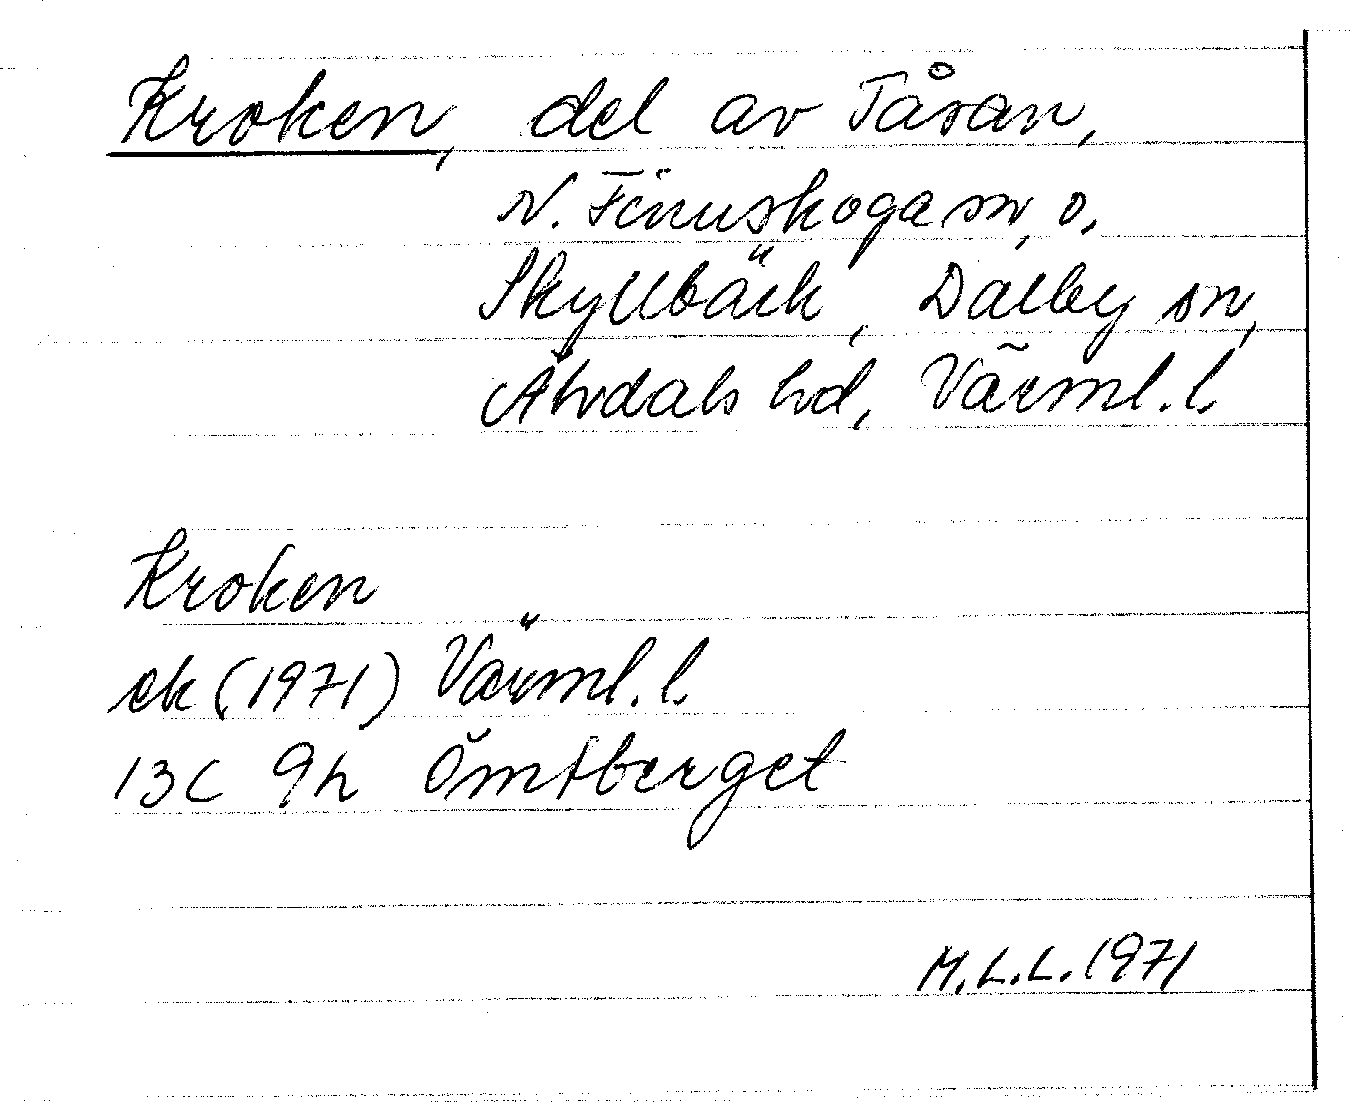 Kroken, del av Tåsan,
N. Finnskoga sn, o.
Skyllbäck, Dalby sn,
Älvdals hd, Värml. l.
Kroken
ek (1971) Värml. l.
13C 9h Ömtberget
M.L.L. 1971